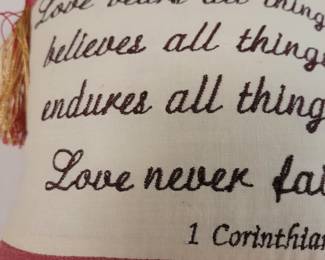 Love bears all thing
believes all thing
endures all thing
Love never fai
1 Corinthian